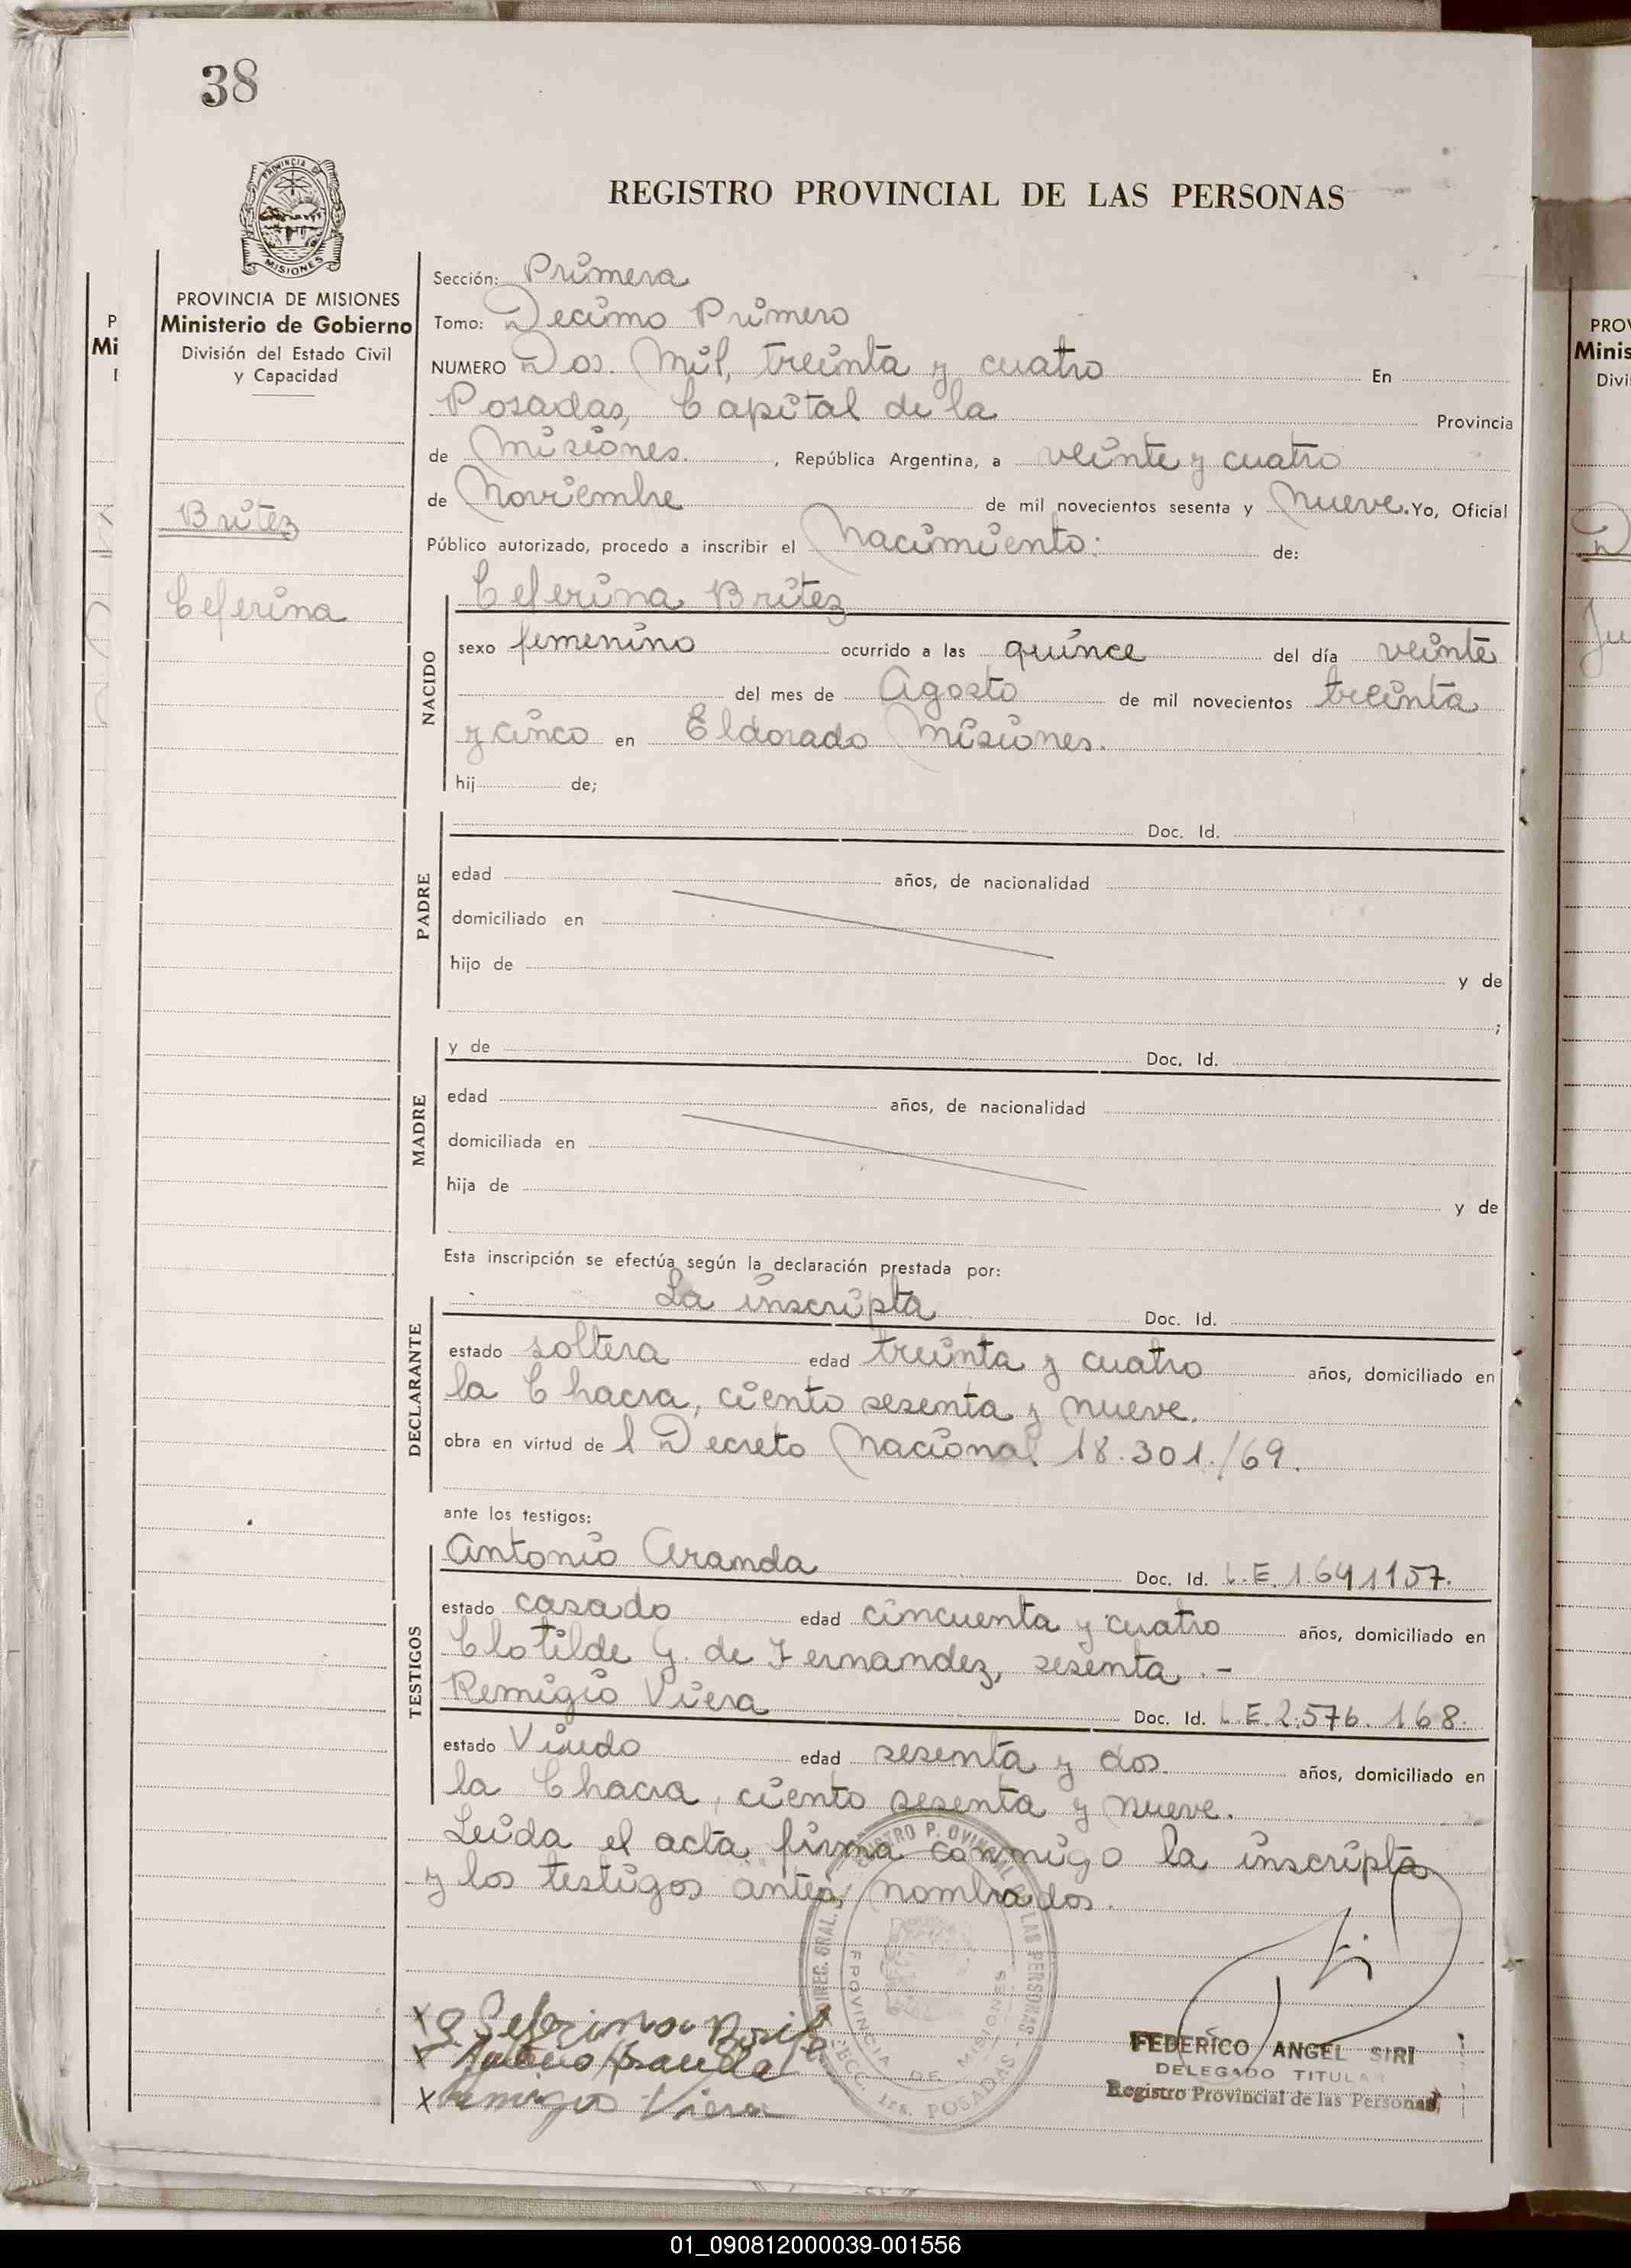 38
PROVINCIA DE
MISIONES
REGISTRO PROVINCIAL DE LAS PERSONAS
PROVINCIA DE MISIONES
Ministerio de Gobierno
División del Estado Civil
y Capacidad
Britez
Ceferina
Sección: Primera
Tomo: Decimo Primero
NUMERO Dos. Mil, treinta y cuatro En
Posadas, Capital de la Provincia
de Misiones. , República Argentina, a veinte y cuatro
de Noviembre de mil novecientos sesenta y Nueve. Yo, Oficial
Público autorizado, procedo a inscribir el Nacimiento: de:
NACIDO
Ceferina Britez
sexo femenino ocurrido a las quince del día veinte
del mes de Agosto de mil novecientos treinta
y cinco en Eldorado Misiones.
hij de;
PADRE
Doc. Id.
edad años, de nacionalidad
domiciliado en
hijo de y de
;
MADRE
y de Doc. Id.
edad años, de nacionalidad
domiciliada en
hija de y de
Esta inscripción se efectúa según la declaración prestada por:
DECLARANTE
La inscripta Doc. Id.
estado soltera edad treinta y cuatro años, domiciliado en
la Chacra, ciento sesenta y nueve.
obra en virtud de l Decreto Nacional 18.301./69.
ante los testigos:
TESTIGOS
Antonio Aranda Doc. Id. L.E. 1.641157.
estado casado edad cincuenta y cuatro años, domiciliado en
Clotilde G. de Fernandez, sesenta .-
Remigio Viera Doc. Id. L.E. 2.576.168.
estado Viudo edad sesenta y dos. años, domiciliado en
la Chacra, ciento sesenta y nueve.
Leida el acta, firma conmigo la inscripta
y los testigos antes, nombrados.
DIREC. GRAL. REGISTRO PROVINCIAL DE LAS PERSONAS
PROVINCIA DE MISIONES
SECC. 1ra. POSADAS
x Remigio Viera
FEDERICO ANGEL SIRI
DELEGADO TITULAR
Registro Provincial de las Personas
P
Mi
PROV
Minis
Divi
Ju
01_090812000039-001556